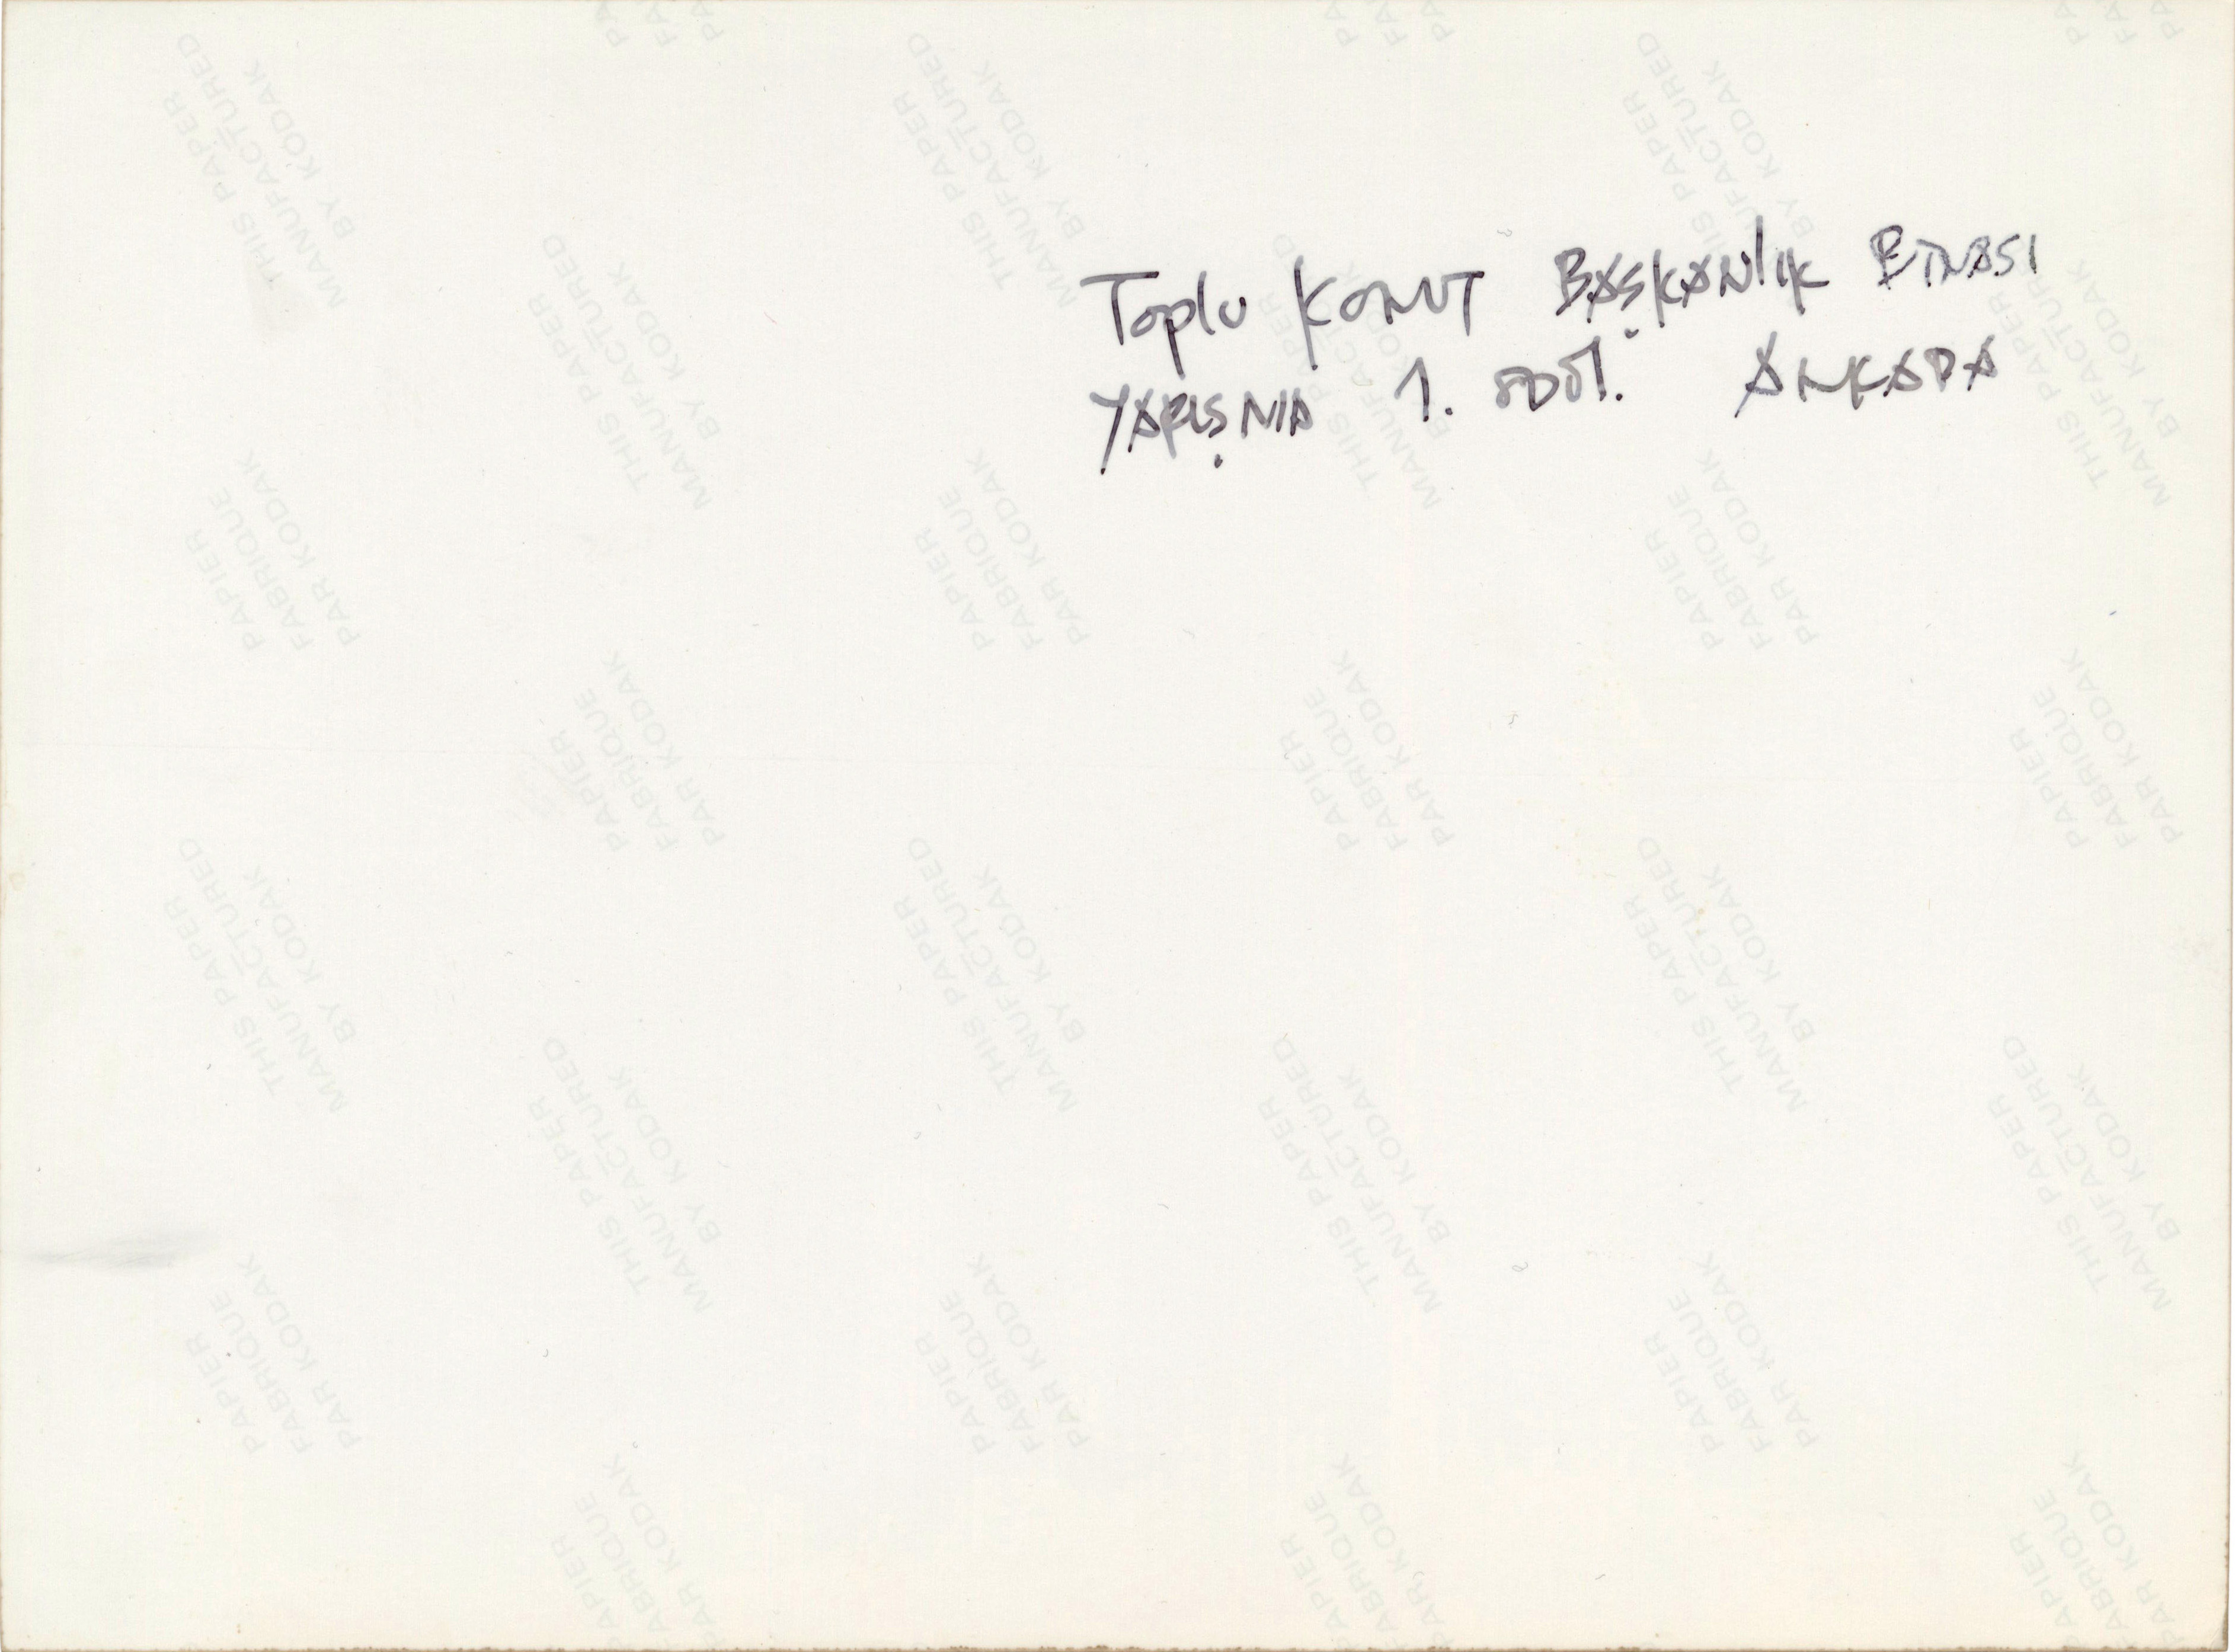 Toplu Konut Başkanlık Binası
1. ödül. Ankara
THIS PAPER
MANUFACTURED
BY KODAK
PAPIER
FABRIQUE
PAR KODAK